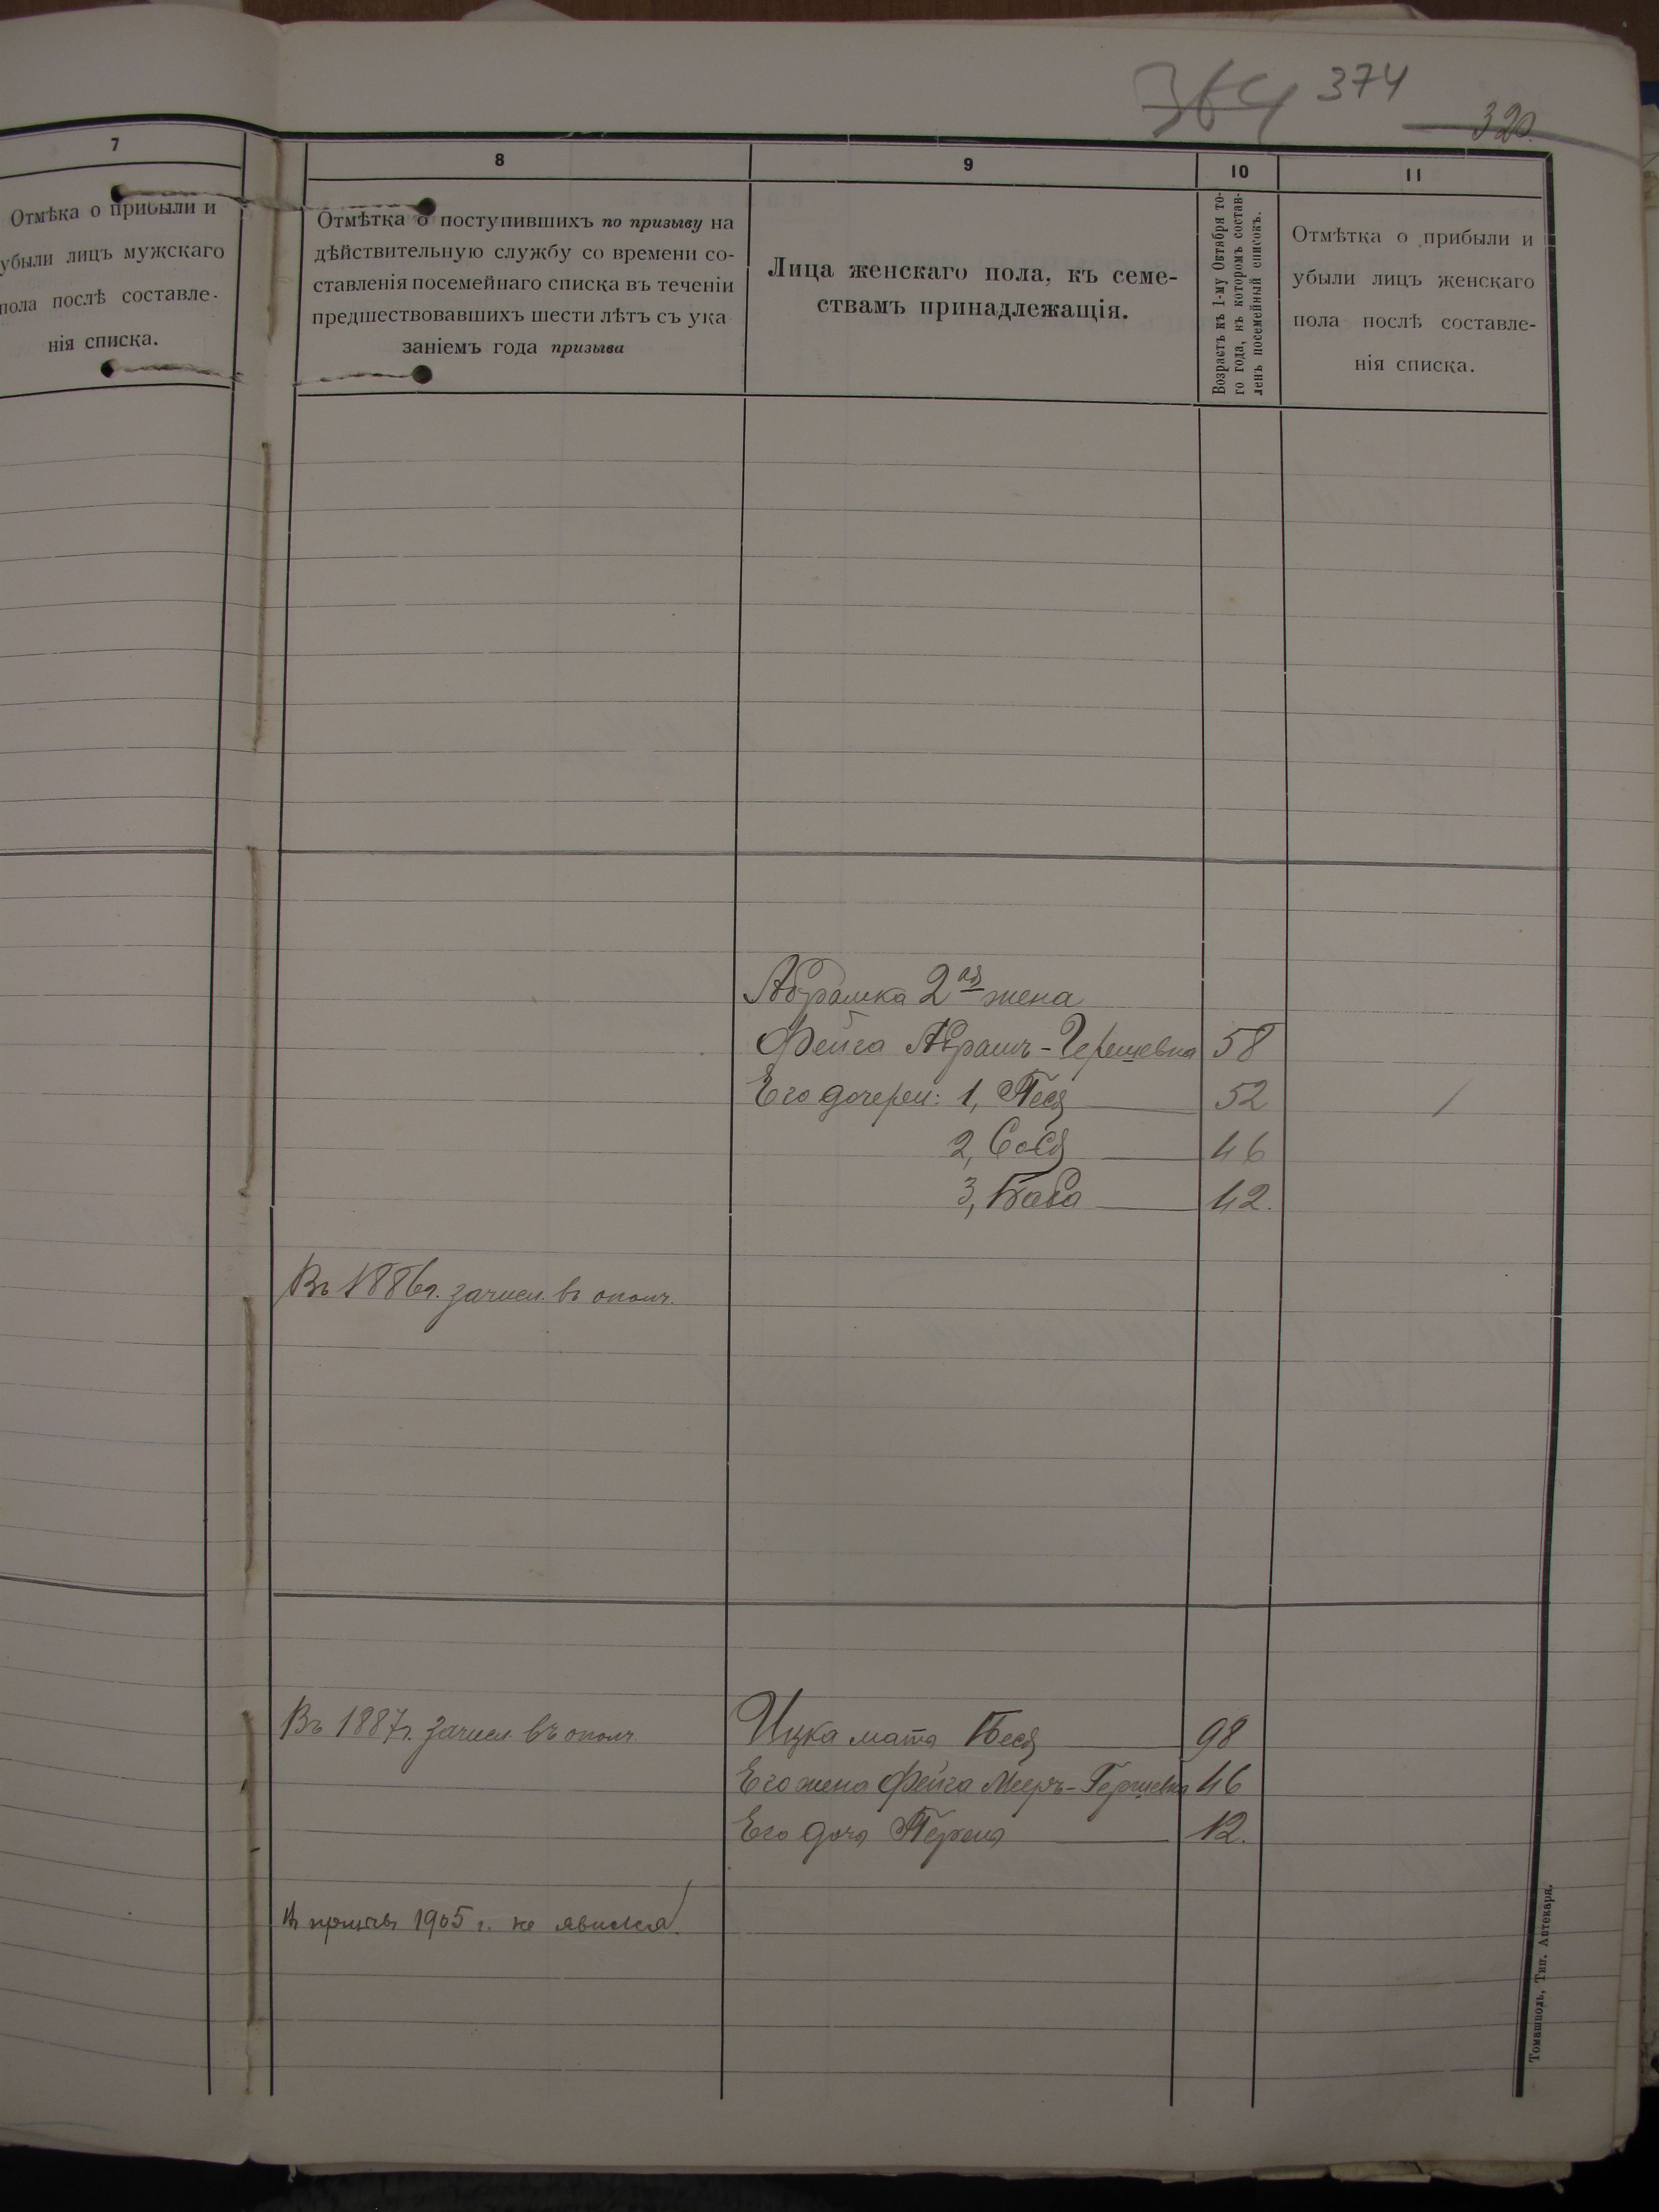 364 374
320.
7
Отмѣка о прибыли и
убыли лицъ мужскаго
пола послѣ составле-
нія списка.
8
Отмѣтка о поступившихъ по призыву на
дѣйствительную службу со времени со-
ставленія посемейнаго списка въ теченіи
предшествовавшихъ шести лѣтъ съ ука
заніемъ года призыва
9
Лица женскаго пола, къ семе-
ствамъ принадлежащія.
10
Возрастъ къ 1-му Октября то-
го года, въ которомъ состав-
ленъ посемейный списокъ.
11
Отмѣтка о прибыли и
убыли лицъ женскаго
пола послѣ составле-
нія списка.
Абрамка 2ая жена
Фейга Абрамъ- 58
Его дочери: 1, Песя 52
2, Сося 46
3, Баба 42.
Въ 1886г. зачисл. въ ополч.
Въ 1887г. зачисл. въ ополч.
Ицка мать Бася 98
Его жена Фейга Мееръ-Гершевна 46
Его дочь Перля 12.
Къ призыву 1905 г. не явился.
Томашполь, Тип. Аптекаря.